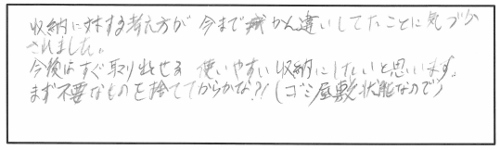 収納に対する考え方が今までかん違いしてたことに気づか
されました。
今後はすぐ取り出せる 使いやすい収納にしたいと思います。
まず不要なものを捨ててからかな?!(ゴミ屋敷状態なので)